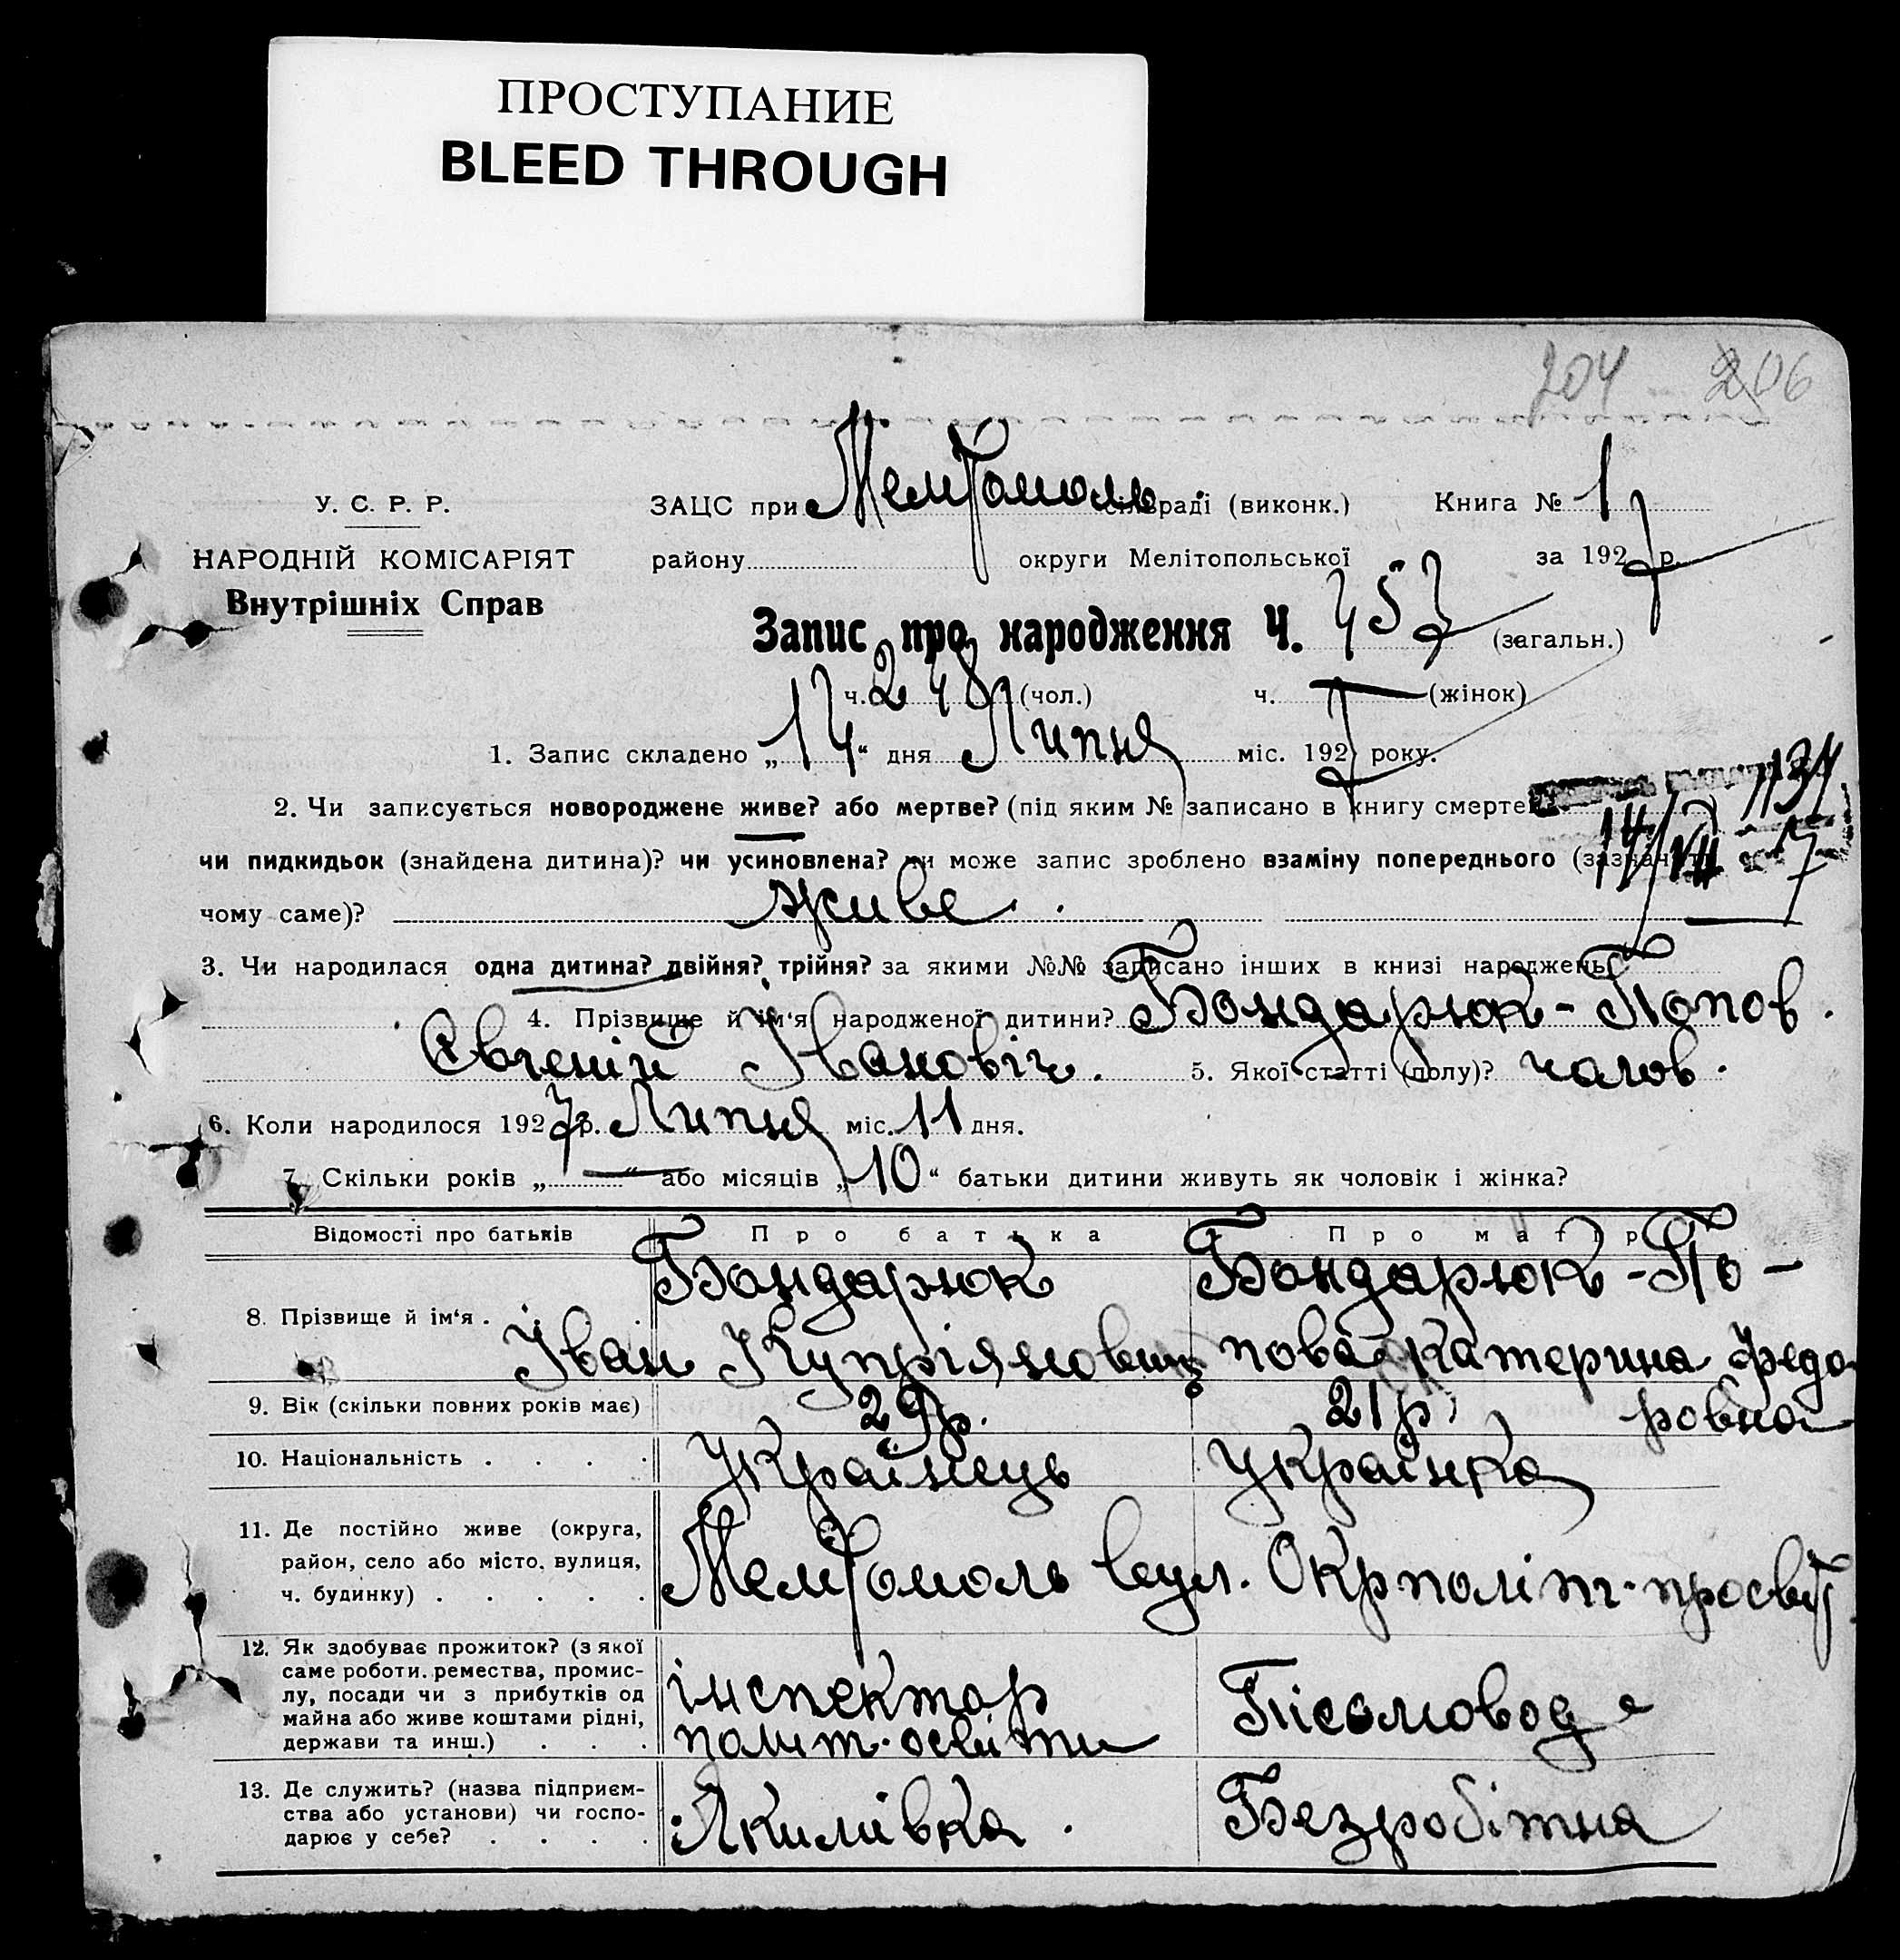 ПРОСТУПАНИЕ
BLEED THROUGH
204 206
У. С. Р. Р.
ЗАЦС при Мелітополь сільраді (виконк.) Книга № 1
НАРОДНІЙ КОМІСАРІЯТ
району округи Мелітопольської за 1927 р.
Внутрішніх Справ
Запис про народження Ч. 457 (загальн.)
ч. 248 (чол.) ч. — (жінок)
1. Запис складено „14“ дня Липня міс. 1927 року.
2. Чи записується новороджене живе? або мертве? (під яким № записано в книгу смертей )
1134
14/VII 27
чи пидкидьок (знайдена дитина)? чи усиновлена? чи може запис зроблено взаміну попереднього (зазначити
чому саме)? живе.
3. Чи народилася одна дитина? двійня? трійня? за якими №№ записано інших в книзі народжень?
4. Прізвище й ім‘я народженої дитини? Бондарюк-Попов.
Євгеній Івановіч. 5. Якої статті (полу)? чолов.
6. Коли народилося 1927 р. Липня міс. 11 дня.
7. Скільки років „—“ або місяців „10“ батьки дитини живуть як чоловік і жінка?
Відомості про батьків Про батька Про матір
8. Прізвище й ім‘я . Бондарюк Бондарюк-По-
Іван Купріянович пова Катерина Федо
9. Вік (скільки повних років має) 29р. 21р. ровна
10. Національність . . . . Українець Українка
11. Де постійно живе (округа,
район, село або місто, вулиця,
ч. будинку) . . . . . Мелітополь вул. Окрполіт-просвіт.
12. Як здобуває прожиток? (з якої
саме роботи. ремества, промис-
лу, посади чи з прибутків од
майна або живе коштами рідні,
держави та инш.) . . .
інспектор
політ-освіти
13. Де служить? (назва підприєм-
ства або установи) чи госпо-
дарює у себе? . . . .
Якимівка. Безробітна